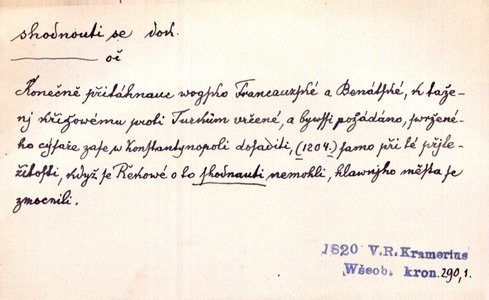 shodnouti se dok.
oč
Konečně přitáhnauc wogsko Francauzské a Benátské, k taže-
nj křižowému proti Turkům určené, a bywssi požádáno, swržené-
ho cýsaře zase w Konstantynopoli dosaditi, (1204.) samo při té přjle-
žitosti, když se Řekowé o to shodnauti nemohli, hlawnjho města se
zmocnili.
1820 V.R. Kramerius
Wšeob. kron. 290,1.